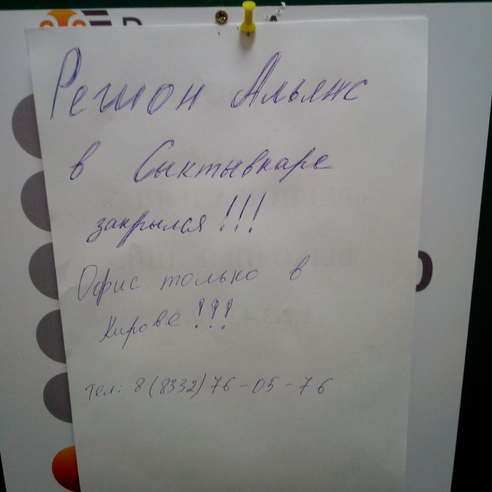 Регион Альянс
в Сыктывкаре
закрылся!!!
Офис только в
Кирове!!!
тел: 8(8332)76-05-76